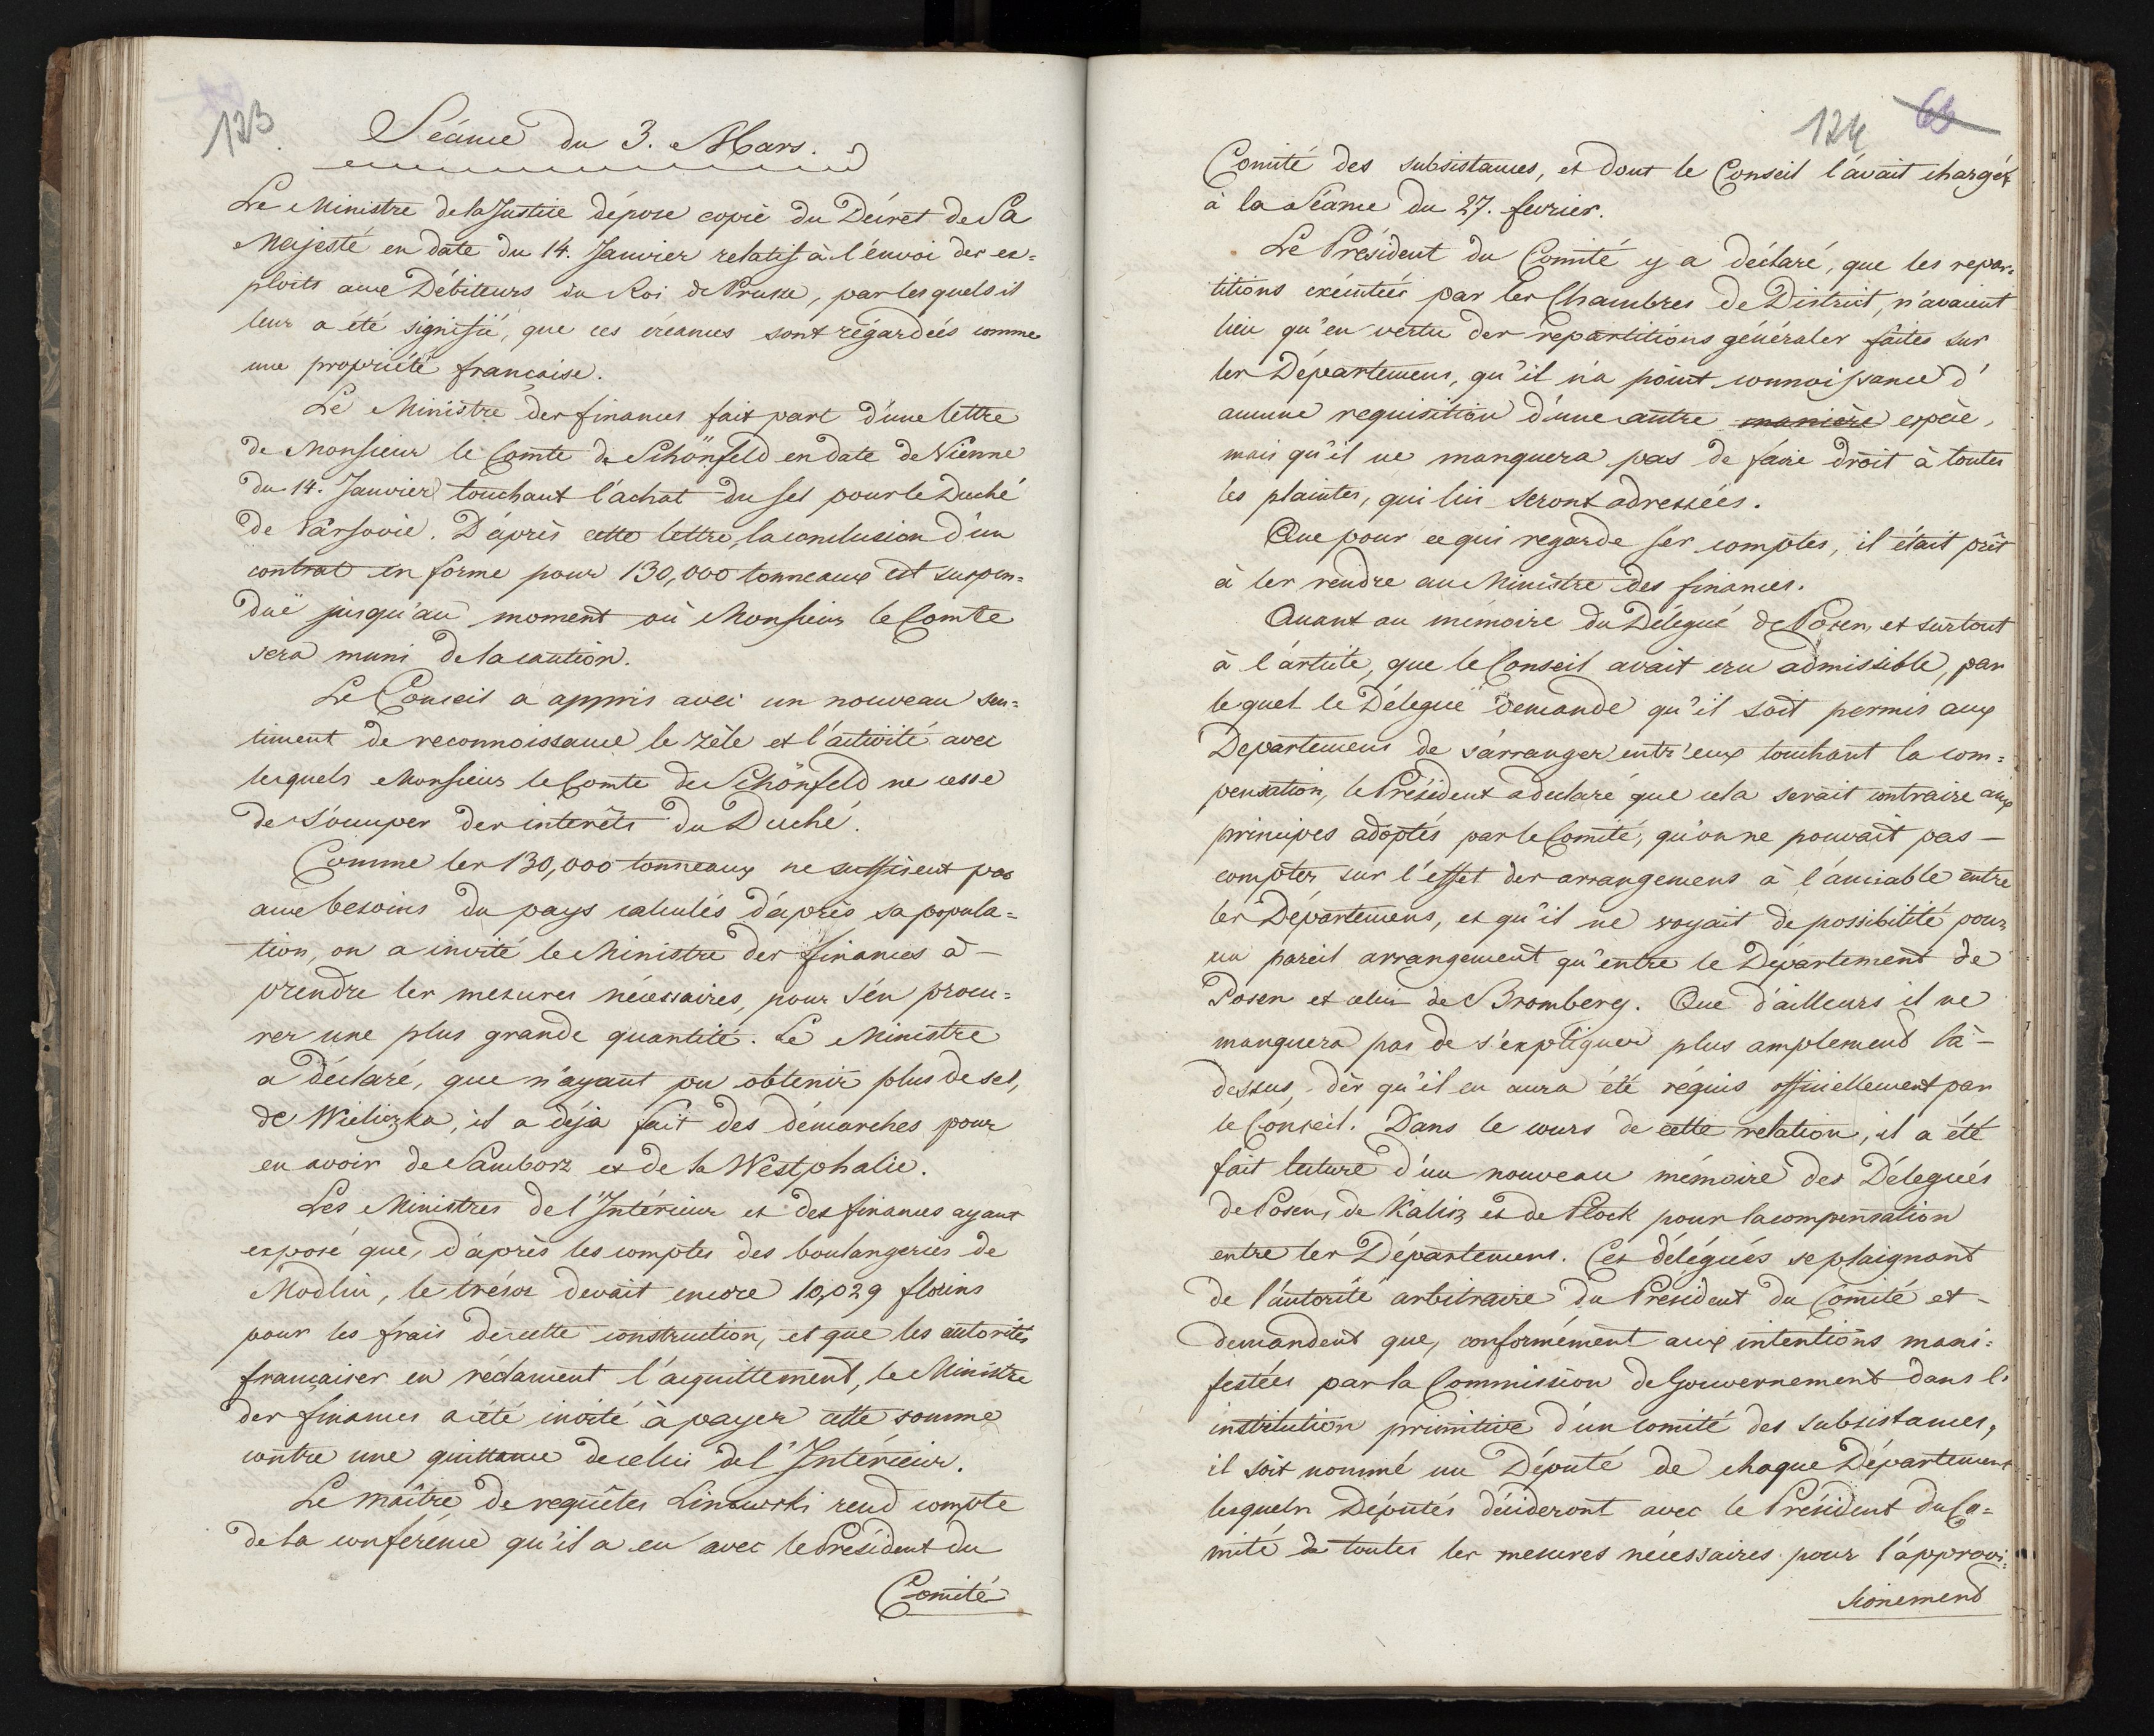 123
Séance du 3. Mars.
Le Ministre de la Justice dépose copie du Décret de Sa
Majesté en date du 14. Janvier relatif à l'envoi des ex=
ploits aux Débiteurs du Roi de Prusse, par lesquels il
leur a été signifié, que ces créances sont régardées comme
une propriété française.
Le Ministre des finances fait part d'une lettre
de Monsieur le Comte de Schönfeld en date de Vienne
du 14. Janvier touchant l'achat du sel pour le Duché
de Varsovie. D'après cette lettre, la conclusion d'un
contrat en forme pour 130,000 tonneaux est suspen=
duë jusqu'au moment où Monsieur le Comte
sera muni de la caution.
Le Conseil a appris avec un nouveau sen=
timent de reconnoissance le zèle et l'activité avec
lesquels Monsieur le Comte de Schönfeld ne cesse
de s'occuper des interêts du Duché.
Comme les 130,000 tonneaux ne suffisent pas
aux besoins du pays calculés d'après sa popula=
tion, on a invité le Ministre des finances à -
prendre les mesures nécessaires, pour s'en procu=
rer une plus grande quantité. Le Ministre
a déclaré, que n'ayant pu obtenir plus de sel,
de Wieliczka, il a déja fait des démarches pour
en avoir de Samborz et de la Westphalie.
Les Ministres de l'Intérieur et des finances ayant
exposé que, d'après les comptes des boulangeries de
Modlin, le trésor devait encore 10,029 florins
pour les frais de cette construction, et que les autorités
françaises en réclament l'acquittement, le Ministre
des finances a été invité à payer cette somme
contre une quittance de celui de l'Intérieur.
Le maître de requêtes Linowski rend compte
de la conférence qu'il a eu avec le Président du
Comité
124 63
Comité des subsistances, et dont le Conseil l'avait chargé
à la Séance du 27. fevrier.
Le Président du Comité y a déclaré, que les repar=
titions exécutées par les Chambres de District, n'avaient
lieu qu'en vertu des repartitions générales faites sur
les Départemens, qu'il n'a point connoissance d'
aucune requisition d'une autre manière espèce,
mais qu'il ne manquera pas de faire droit à toutes
les plaintes, qui lui seront adressées.
Que pour ce qui regarde ses comptes, il était prêt
à les rendre au Ministre des finances.
Quant au mémoire du Délegué de Posen, et surtout
à l'article, que le Conseil avait cru admissible, par
lequel le Délegué demande qu'il soit permis aux
Departemens de s'arranger entr'eux touchant la com=
pensation, le Président a declaré que cela serait contraire aux
principes adoptés par le Comité, qu'on ne pouvait pas -
compter sur l'effet des arrangemens à l'amiable entre
les Départemens, et qu'il ne voyait de possibilité pour
un pareil arrangement qu'entre le Département de
Posen et celui de Bromberg. Que d'ailleurs il ne
manquera pas de s'expliquer plus amplement là -
dessus, dès qu'il en aura été réquis officiellement par
le Conseil. Dans le cours de cette relation, il a été
fait lecture d'un nouveau mémoire des Délegués
de Posen, de Kalisz et de Plock pour la compensation
entre les Départemens. Ces délégués se plaignant
de l'autorité arbitraire du Président du Comité et -
demandent que, conformément aux intentions mani=
festées par la Commission de Gouvernement dans l'
institution primitive d'un comité des subsistances,
il soit nommé un Député de chaque Département
lesquels Députés décideront avec le Président du Co=
mité de toutes les mesures nécessaires pour l'approvi=
sionement